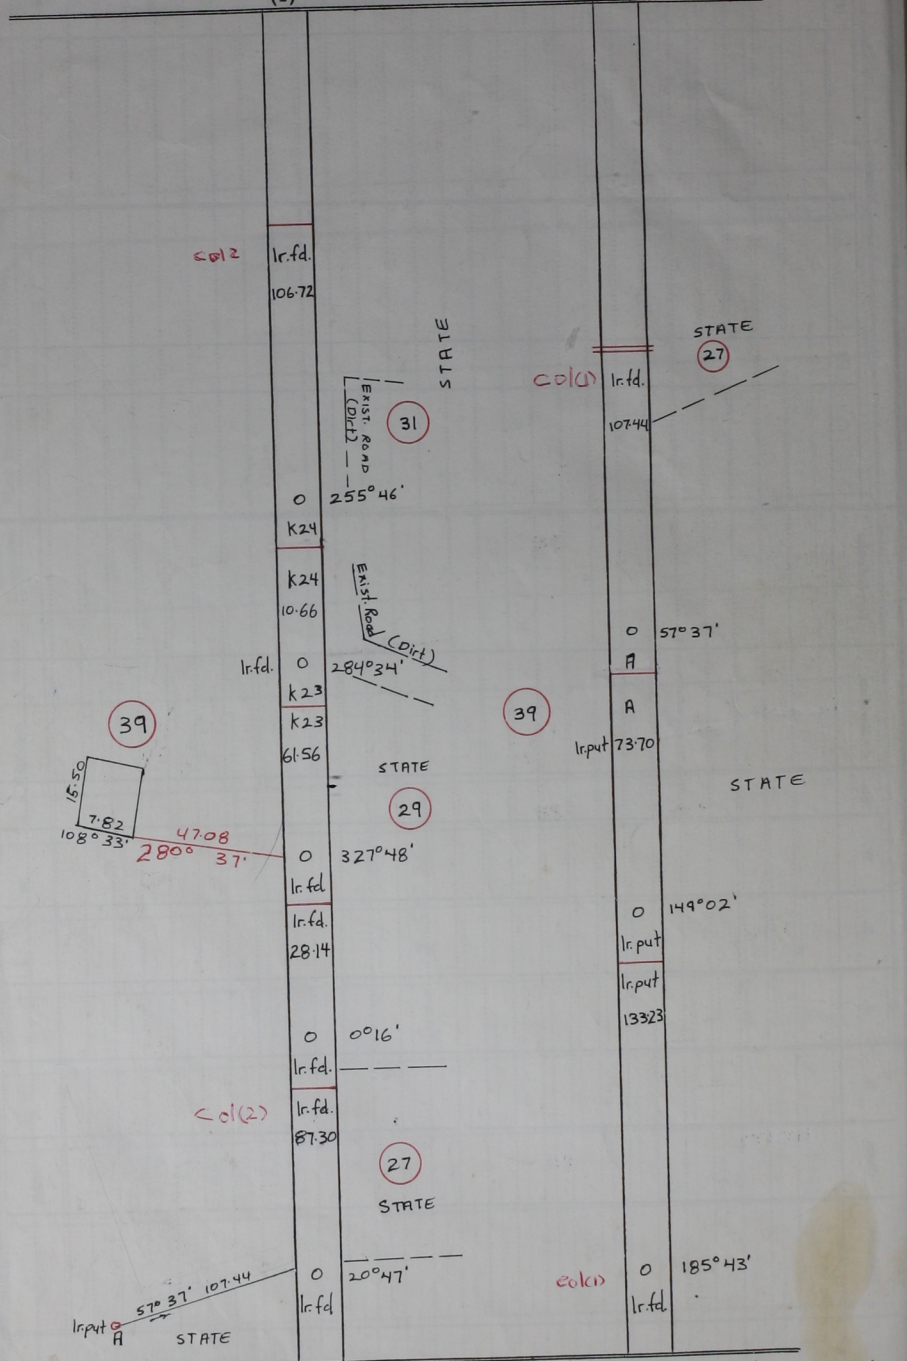 col 2
Ir.fd.
106.72
STATE
EXIST. ROAD
(Dirt)
31
O 255°46'
K24
K24
10.66
Exist. Road (Dirt)
Ir.fd. O 284°34'
K23
K23
61.56
39
STATE
29
15.50
7.82
108°33'
47.08
280° 37'
O 327°48'
Ir.fd
Ir.fd.
28.14
O 0°16'
Ir.fd.
Col(2)
Ir.fd.
87.30
27
STATE
O 20°47'
Ir.fd
57° 37' 107.44
Ir.put
A
STATE
STATE
27
Col(1)
Ir.fd.
107.44
O 57°37'
A
39
A
Ir.put 73.70
STATE
O 149°02'
Ir.put
Ir.put
133.23
col(1)
O 185°43'
Ir.fd